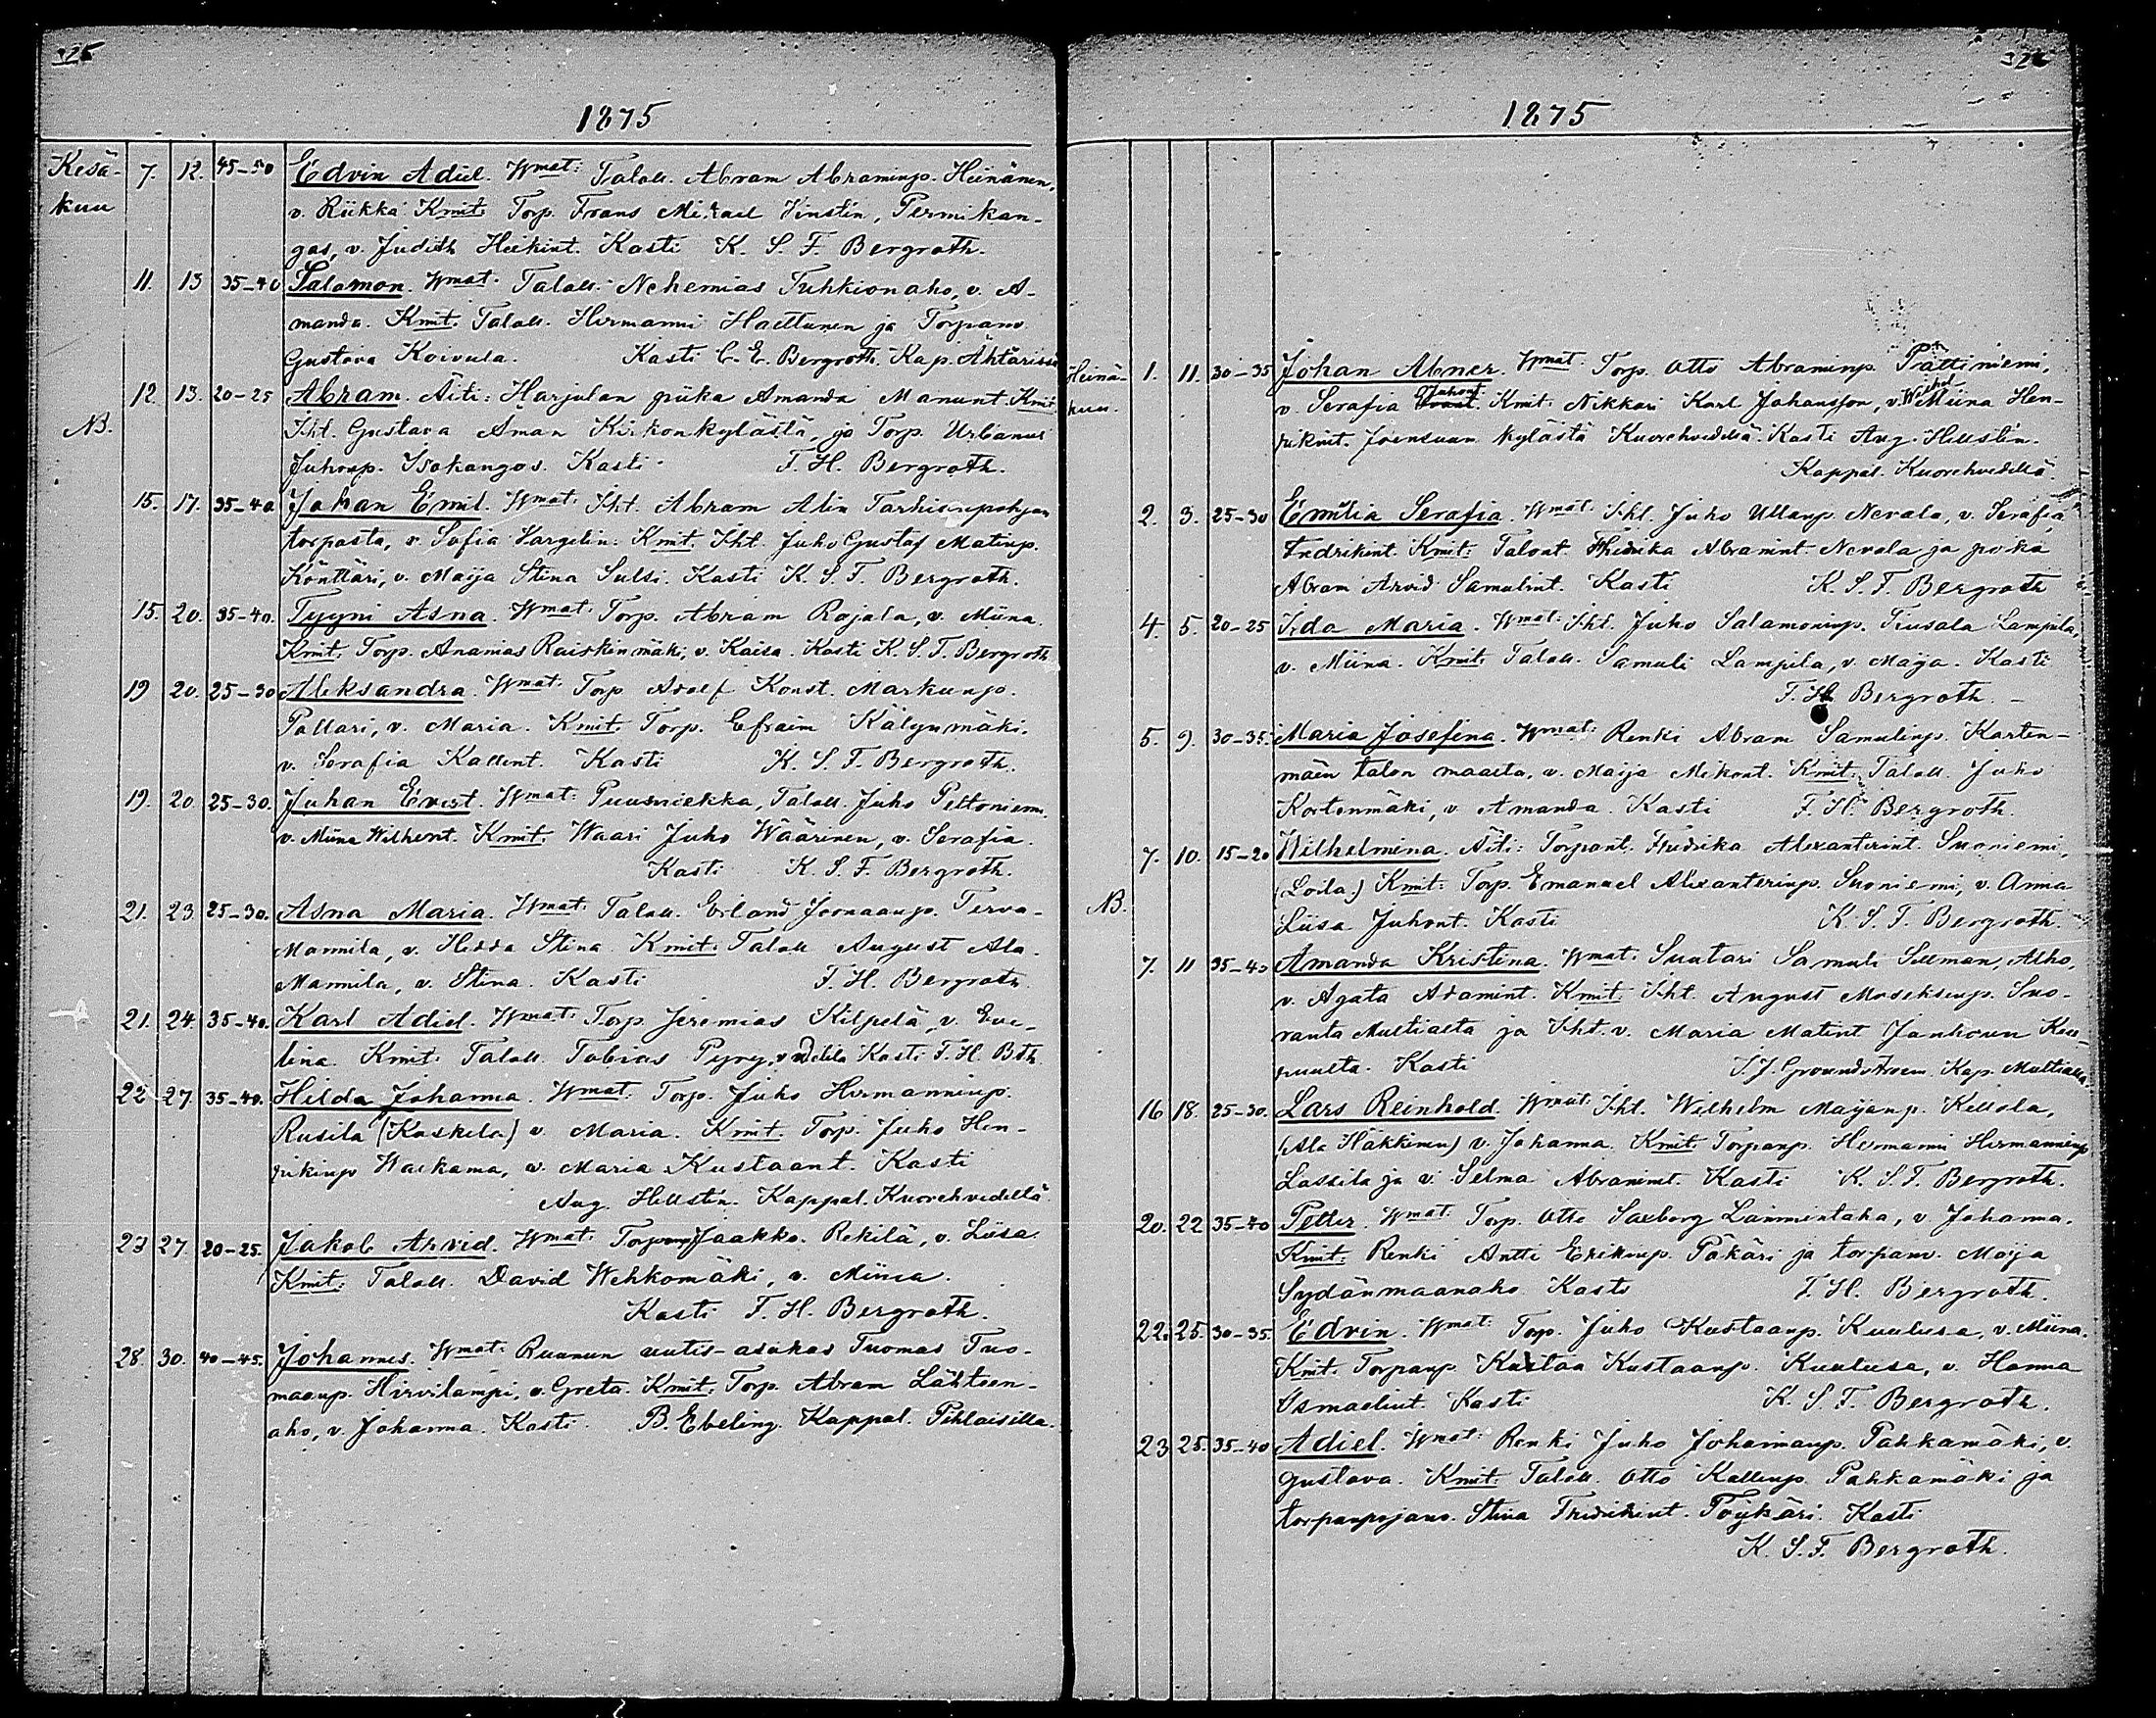 325
1875
Kesä- 7. 12. 45-50 Edvin Adiel. Wmat: Talall. Abram Abraminp. Heinänen,
kuu v. Riikka Kmit: Torp. Frans Mikael Finstin, Permikan-
gas, v. Judith Heikint. Kasti K. S. F. Bergroth.
11. 13 35-40 Salomon. Wmat. Talall. Nehemias Tuhkionaho, v. A-
manda. Kmit. Talall. Hermanni Haettunen ja Torpanv.
Gustava Koivula. Kasti C. E. Bergroth. Kap. Ähtärissä
12 13. 20-25 Abram. Äiti: Harjulan piika Amanda Manunt. Kmit.
NB. Iht. Gustava Åman Kirkonkylästä ja Torp. Urbanus
Juhonp. Isokangas. Kasti F. H. Bergroth.
15. 17. 35-40 Johan Emil. Wmat: Iht. Abram Alin Tarhianpohjan
torpasta, v. Sofia Hargelin. Kmit. Iht. Juho Gustaf Matinp.
Könttäri, v. Maija Stina Sulsi. Kasti K. S. F. Bergroth.
15. 20. 35-40. Tyyni Asna. Wmat: Torp. Abram Rajala, v. Miina.
Kmit: Torp. Ananias Raiskinmäki, v. Kaisa. Kasti K. S. F. Bergroth
19 20. 25-30 Aleksandra. Wmat: Torp Adolf Konst. Markunp.
Pallari, v. Maria. Kmit. Torp. Efraim Kälynmäki.
v. Serafia Kallent. Kasti K. S. F. Bergroth.
19. 20. 25-30. Juhan Evert. Wmat: Puuseniekka, Talall. Juho Peltoniemi.
v. Miina Wilhent. Kmit. Waari Juho Wäärinen, v. Serafia.
Kasti K. S. F. Bergroth.
21. 23. 25-30. Asna Maria. Wmat: Talall. Erland Joonaanp. Terva-
Mannila, v. Hedda Stina Kmit: Talall August Ala
Mannila, v. Stina. Kasti F. H. Bergroth.
21. 24. 35-40. Karl Adiel. Wmat: Torp. Jeremias Kilpelä, v. Eve-
lina. Kmit: Talall. Tobias Pyry, v. Kasti F. H. Bth.
22 27. 35-40. Hilda Johanna. Wmat. Torp. Juho Hermanninp.
Rusila (Kaskela) v. Maria. Kmit. Torp. Juho Hen-
rikinp Waekama, v. Maria Kustaant. Kasti
Aug. Hellstén. Kappal. Kuorehvedellä.
23 27. 20-25. Jakob Arvid. Wmat: Torp Jaakko Rekilä, v. Liisa.
Kmit: Talall. David Wehkomäki, v. Miina.
Kasti F. H. Bergroth.
28. 30. 40-45. Johannes. Wmat: Ruunun uutis-asukas Tuomas Tuo-
maanp. Hirvilampi, v. Greta. Kmit: Torp. Abram Lähteen-
aho, v. Johanna. Kasti. B. Ebeling. Kappal. Pihlaisilla.
326
1875
Heinä- 1. 11. 30-35 Johan Abner. Wmat. Torp. Otto Abraminp. Prättiniemi,
kuu. v. Serafia Juhont. Kmit: Nikkari Karl Johansson, v. Wilhel. Miina Hen-
rikint. Joensuun kylästä Kuorehvedellä. Kasti Aug. Hellstén.
Kappal. Kuorehvedellä.
2. 3. 25-30 Emilia Serafia. Wmat. Iht. Juho Ullanp. Nevala, v. Serafia
Fredrikint. Kmit: Talont. Fredrika Abramint. Nevala ja poika
Abram Arvid Samulint. Kasti K. S. F. Bergroth
4. 5. 20-25 Ida Maria. Wmat. Iht. Juho Salamoninp. Tuusala Lampila,
v. Miina. Kmit: Talall. Samuli Lampila, v. Maija. Kasti
F. H. Bergroth.
5. 9. 30-35. Maria Josefina. Wmat: Renki Abram Samulinp. Korten-
mäen talon maalta, v. Maija Mikont. Kmit: Talall. Juho
Kortenmäki, v Amanda. Kasti F. H. Bergroth.
7. 10. 15-20 Wilhelmina. Äiti: Torpant. Fredrika Alexanterint. Suoniemi,
NB. (Loila.) Kmit: Torp. Emanuel Alexanterinp. Suoniemi, v. Anna
Liisa Juhont. Kasti K. S. F. Bergroth.
7. 11 35-40 Amanda Kristina. Wmat: Suutari Samuli Sillman, Alho,
v. Agata Adamint. Kmit: Iht. August Moseksenp. Suo-
ranta Multialta ja Iht. v. Maria Matint Janhoun Keu-
ruulta. Kasti Kap. Multialla.
16. 18. 25-30. Lars Reinhold. Wmat: Iht. Wilhelm Maijanp. Kellola,
(Ala Häkkinen) v. Johanna. Kmit: Torpanp. Hermanni Hermanninp
Lassila ja v. Selma Abramint. Kasti K. S. F. Bergroth.
20. 22 35-40 Petter. Wmat: Torp. Otto Saxberg Lamminlaha, v. Johanna.
Kmit: Renki Antti Erikinp. Päkäri ja torpanv. Maija
Sydänmaanaho. Kasti F. H. Bergroth.
22. 25. 30-35. Edvin. Wmat: Torp. Juho Kustaanp. Kuulusa, v. Miina.
Kmit. Torpanp. Kustaa Kustaanp. Kuulusa, v. Hanna
Ismaelint. Kasti K. S. F. Bergroth.
23 25. 35-40 Adiel. Wmat: Renki Juho Johannanp. Pahkamäki, v.
Gustava. Kmit: Talall. Otto Kallenp. Pahkamäki ja
torpanpojanv. Stina Fredrikint. Töykäri. Kasti
K. S. F. Bergroth.